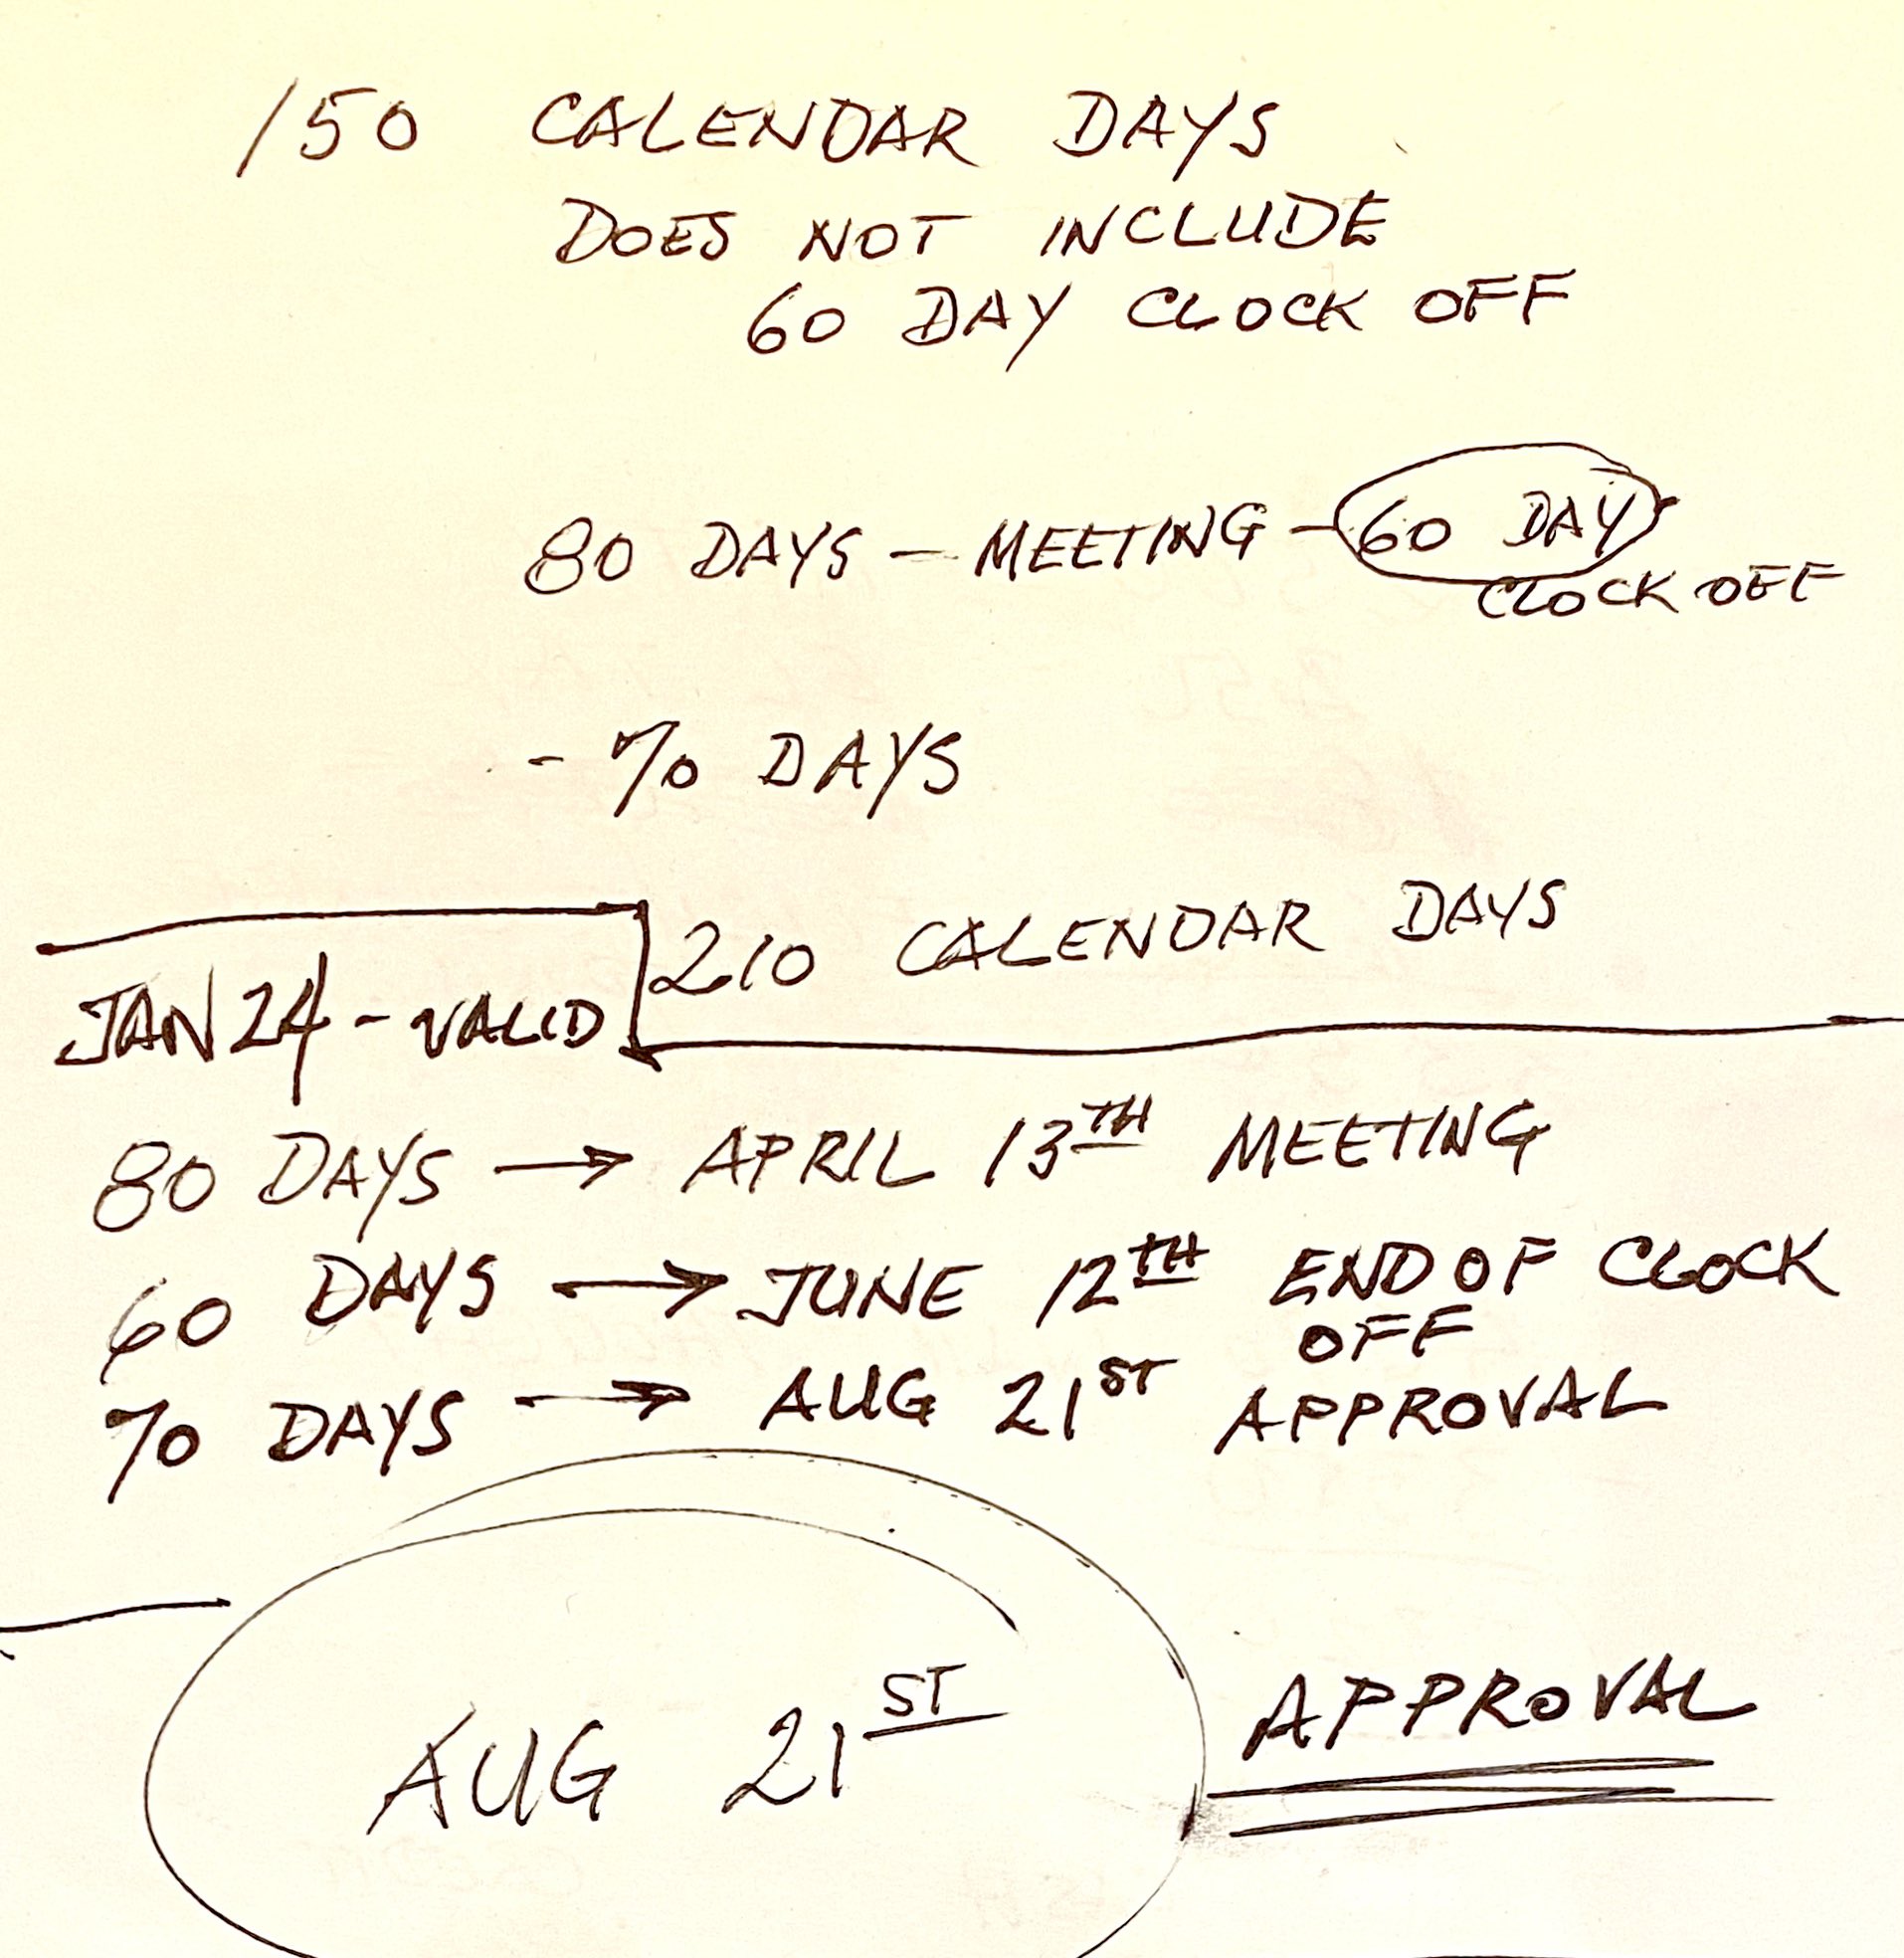 150 CALENDAR DAYS
DOES NOT INCLUDE
60 DAY CLOCK OFF
80 DAYS — MEETING — 60 DAY
CLOCK OFF
- 70 DAYS
210 CALENDAR DAYS
JAN 24 - VALID
80 DAYS → APRIL 13TH MEETING
60 DAYS → JUNE 12TH END OF CLOCK
OFF
70 DAYS → AUG 21ST APPROVAL
AUG 21ST APPROVAL